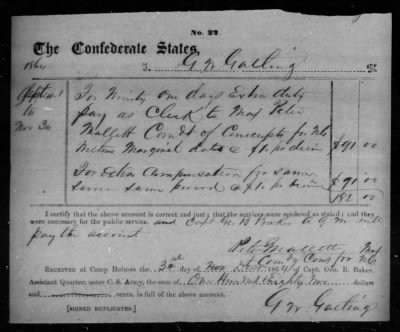 No. 22.
The Confederate States,
1864 To G W Gatling
For Ninety One days Extra duty
to pay as Clerk to Maj Peter
Nov 30 Mallett Comdt of Conscripts for NC
Within Marginal dates @ $1. pr diem $91 00
For Extra Compensation for same
same period @ $1. pr diem $91 00
182 00
I certify that the above account is correct and just; that the services were rendered as stated; and they
were necessary for the public service. and Capt G B Baker A Q M will
pay the account
Peter Mallett Maj
Comdg Cons for NC
Received at Camp Holmes the day of 1864 of Capt. Geo. B. Baker,
Assistant Quarter master C. S. Army, the sum of One Hundred Eighty Two dollars
and cents, in full of the above account.
[SIGNED DUPLICATES.] G W Gatling